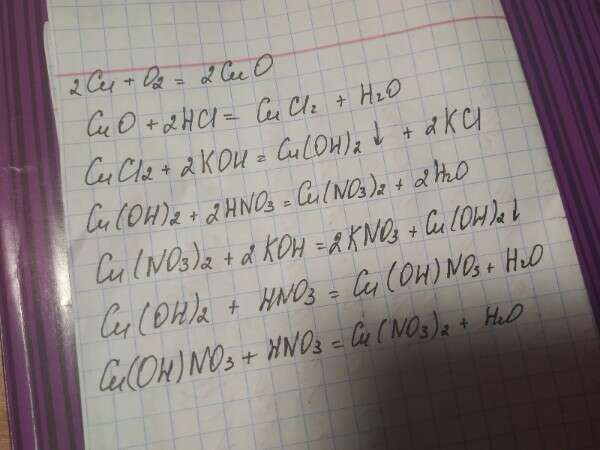 2Cu + O2 = 2CuO
CuO + 2HCl = CuCl2 + H2O
CuCl2 + 2KOH = Cu(OH)2↓ + 2KCl
Cu(OH)2 + 2HNO3 = Cu(NO3)2 + 2H2O
Cu(NO3)2 + 2KOH = 2KNO3 + Cu(OH)2↓
Cu(OH)2 + HNO3 = Cu(OH)NO3 + H2O
Cu(OH)NO3 + HNO3 = Cu(NO3)2 + H2O